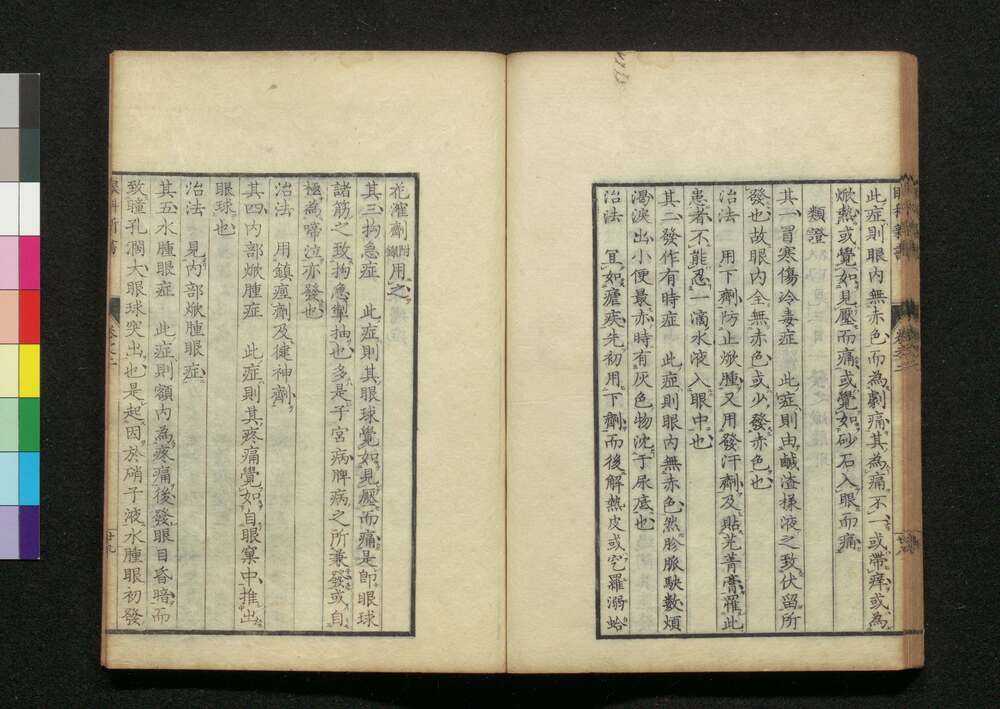 此症則眼内無赤色而為劇痛其為痛不一或帶痒或為
焮熱或覺如見壓而痛或覺如砂石入眼而痛
類證
其一冒寒傷冷毒症 此症則由鹹渣様液之致伏留所
發也故眼内全無赤色或少發赤色也
治法 用下劑防止焮腫又用發汗劑及貼芫菁膏罹此
患者不能忍一滴水液入眼中也
其二發作有時症 此症則眼内無赤色然胗脈駃数煩
渇涙出小便最赤時有灰色物沈于尿底也
治法 宜如瘧疾先初用下劑而後解熱皮或它羅溺蛤
花濯劑附録用之
其三拘急症 此症則其眼球覺如見壓而痛是即眼球
諸筋之致拘急掣抽也多是子宮病脾病之所兼發或自
極為啼泣亦發也
治法 用鎮痙劑及健神劑
其四内部焮腫症 此症則其疼痛覺如自眼窠中推出
眼球也
治法 見内部焮腫眼症
其五水腫眼症 此症則額内為疼痛後發眼目昏暗而
致瞳孔濶大眼球突出也是起因於硝子液水腫眼初發
眼科新書
卷之二
廿九